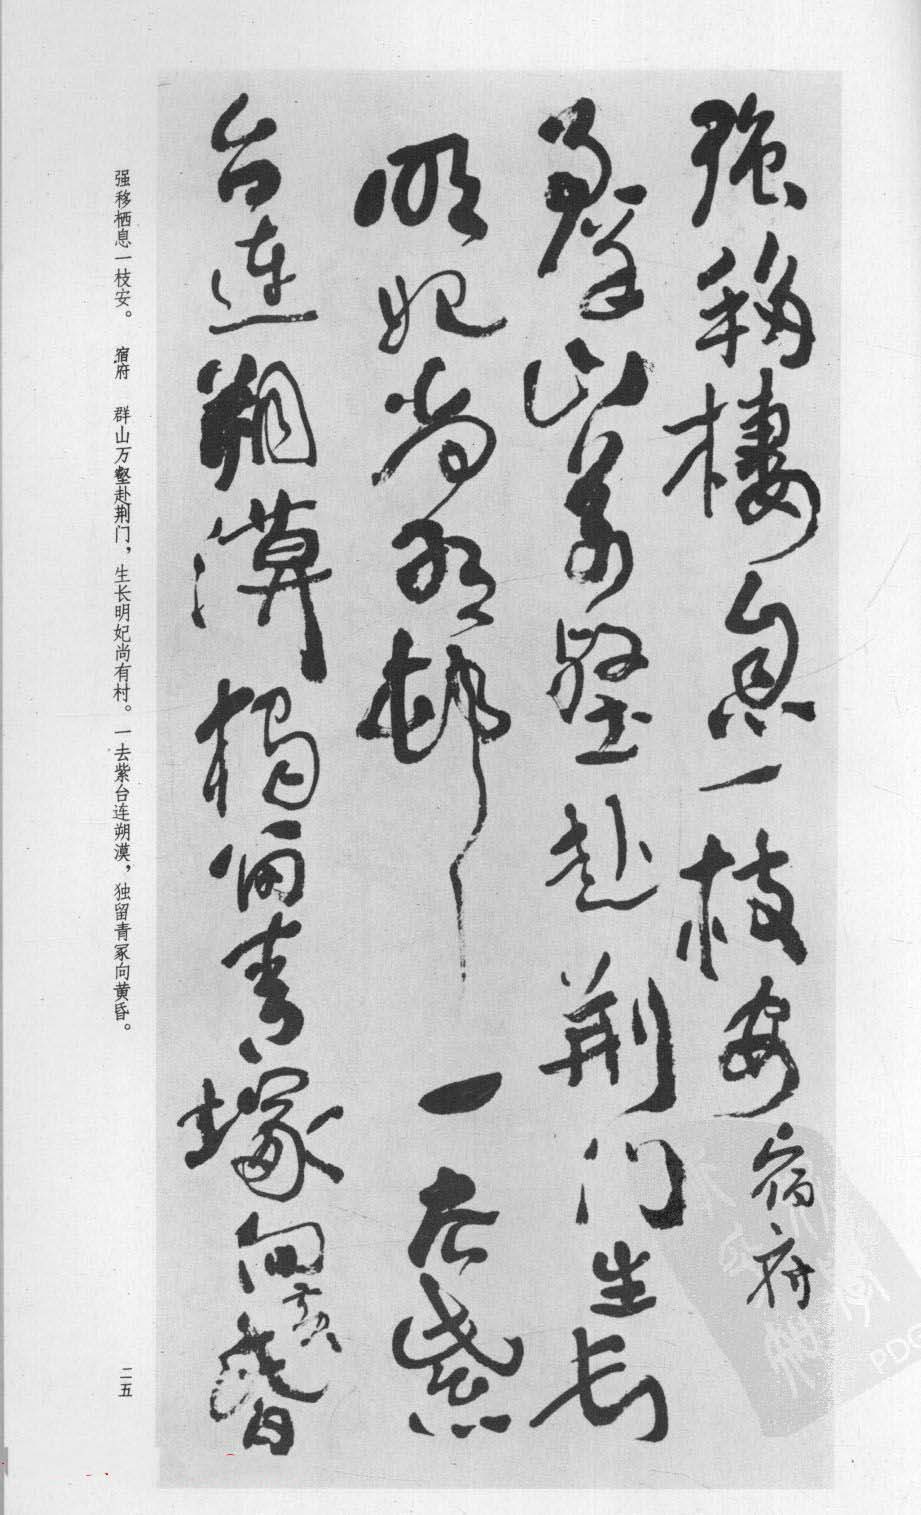 强移棲息一枝安宿府
羣山万壑赴荆门生长
明妃尚有邨一去紫
台连朔漠独留青塚向黄昏
强移栖息一枝安。 宿府 群山万壑赴荆门，生长明妃尚有村。一去紫台连朔漠，独留青冢向黄昏。
二五